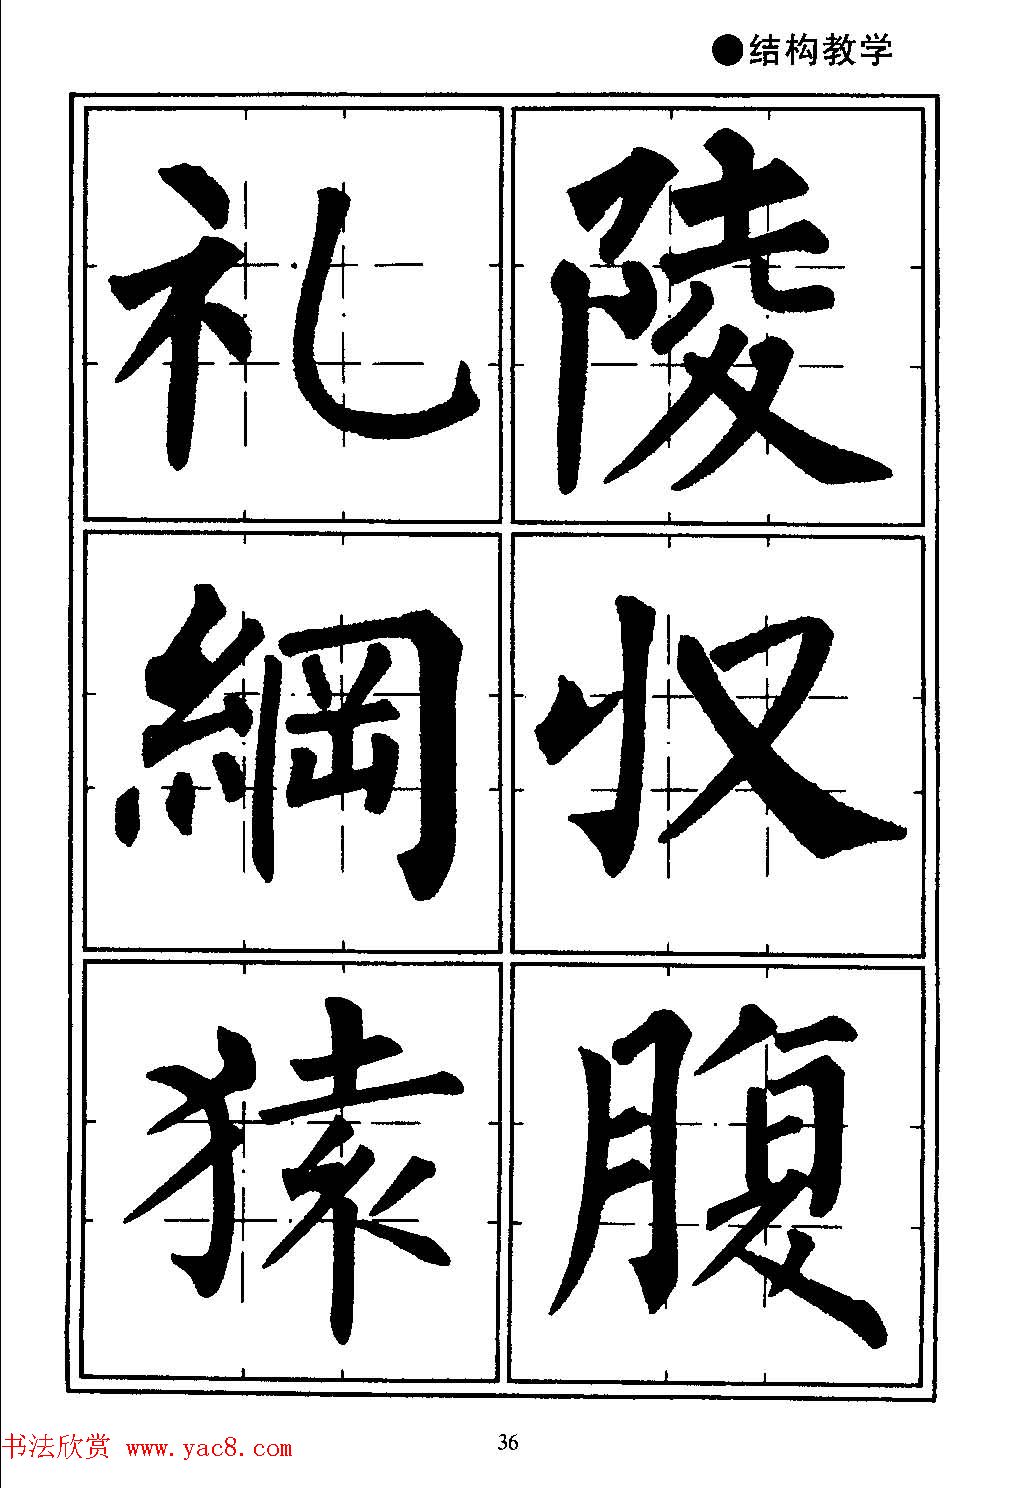 ●结构教学
礼 陵
綱 収
猿 腹
36
书法欣赏 www.yac8.com